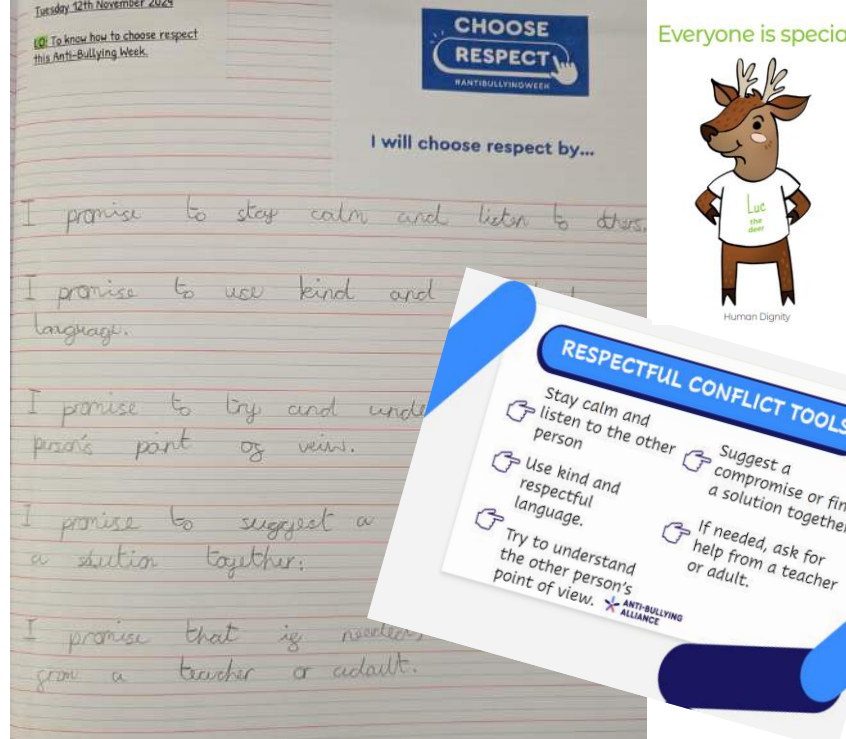 Tuesday 12th November 2024
LO: To know how to choose respect
this Anti-Bullying Week.
CHOOSE
RESPECT
#ANTIBULLYINGWEEK
I will choose respect by...
I promise to stay calm and listen to others.
I promise to use kind and
language.
I promise to try and unde
person's point of veiw.
I promise to suggest a
a solution together.
I promise that if needed,
from a teacher or adault.
Everyone is specia
Luc
the
deer
Human Dignity
RESPECTFUL CONFLICT TOOLS
Stay calm and
listen to the other
person
Use kind and
respectful
language.
Try to understand
the other person's
point of view.
Suggest a
compromise or fin
a solution together
If needed, ask for
help from a teacher
or adult.
ANTI-BULLYING
ALLIANCE